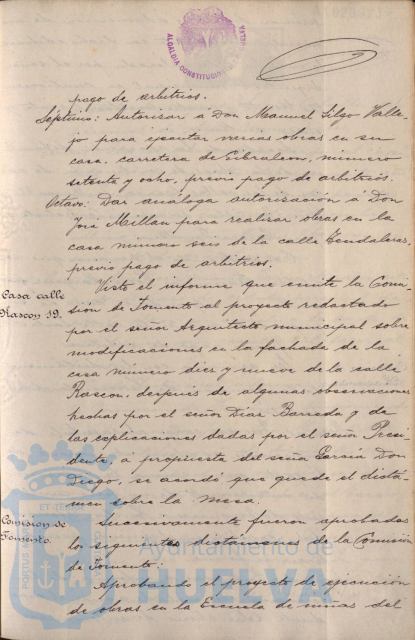 ALCALDIA CONSTITUCIONAL
pago de arbitrios.
Séptimo: Autorizar a Don Manuel Silgo Valle-
jo para ejecutar varias obras en su
casa, carretera de Gibraleon, número
setenta y ocho, previo pago de arbitrios.
Octavo: Dar análoga autorización á Don
José Millan para realizar obras en la
casa número seis de la calle Tendaleras,
previo pago de arbitrios.
Casa calle
Rascon 19.
Visto el informe que emite la Comi-
sión de Fomento al proyecto redactado
por el señor Arquitecto municipal sobre
modificaciones en la fachada de la
casa número diez y nueve de la calle
Rascon, después de algunas observaciones
hechas por el señor Diaz Barreda y de
las explicaciones dadas por el señor Presi-
dente, á propuesta del señor Garcia Don
Diego, se acordó que quede el dictá-
men sobre la Mesa.
Comision de
Fomento.
Sucesivamente fueron aprobados
los siguientes dictámenes de la Comisión
de Fomento:
Aprobando el proyecto de ejecución
de obras en la Escuela de niñas del
Ayuntamiento de
HUELVA
PORTUS